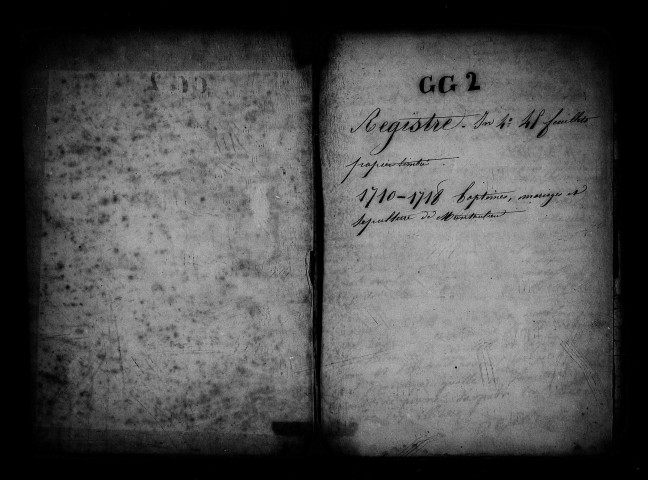 GG 2
Registre. In 4º 48 feuillets
papier timbré.
1710-1718 Baptêmes, mariages et
sépulture de